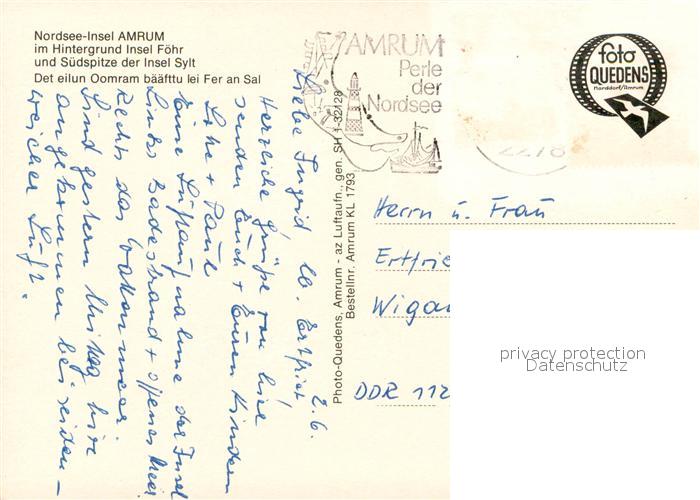 Nordsee-Insel AMRUM
im Hintergrund Insel Föhr
und Südspitze der Insel Sylt
Det eilun Oomram bääfttu lei Fer an Sal
AMRUM
Perle
der
Nordsee
foto
QUEDENS
Norddorf/Amrum
Photo-Quedens, Amrum - az Luftaufn., gen. SH 1-32128
Bestellnr. Amrum KL 1793
2.6.
Liebe Ingrid lb. Ertfriet
Herzliche Grüße von hier
senden Euch + Euren Kindern
Lihe + Paul
Eine Luftaufnahme der Insel
Links Badestrand + offenes Meer
Rechts das Wattenmeer.
Sind gestern Mittag hier
angekommen bei seiden-
weicher Luft.
Herrn u. Frau
Ertfrie
Wigan
DDR 112
privacy protection
Datenschutz